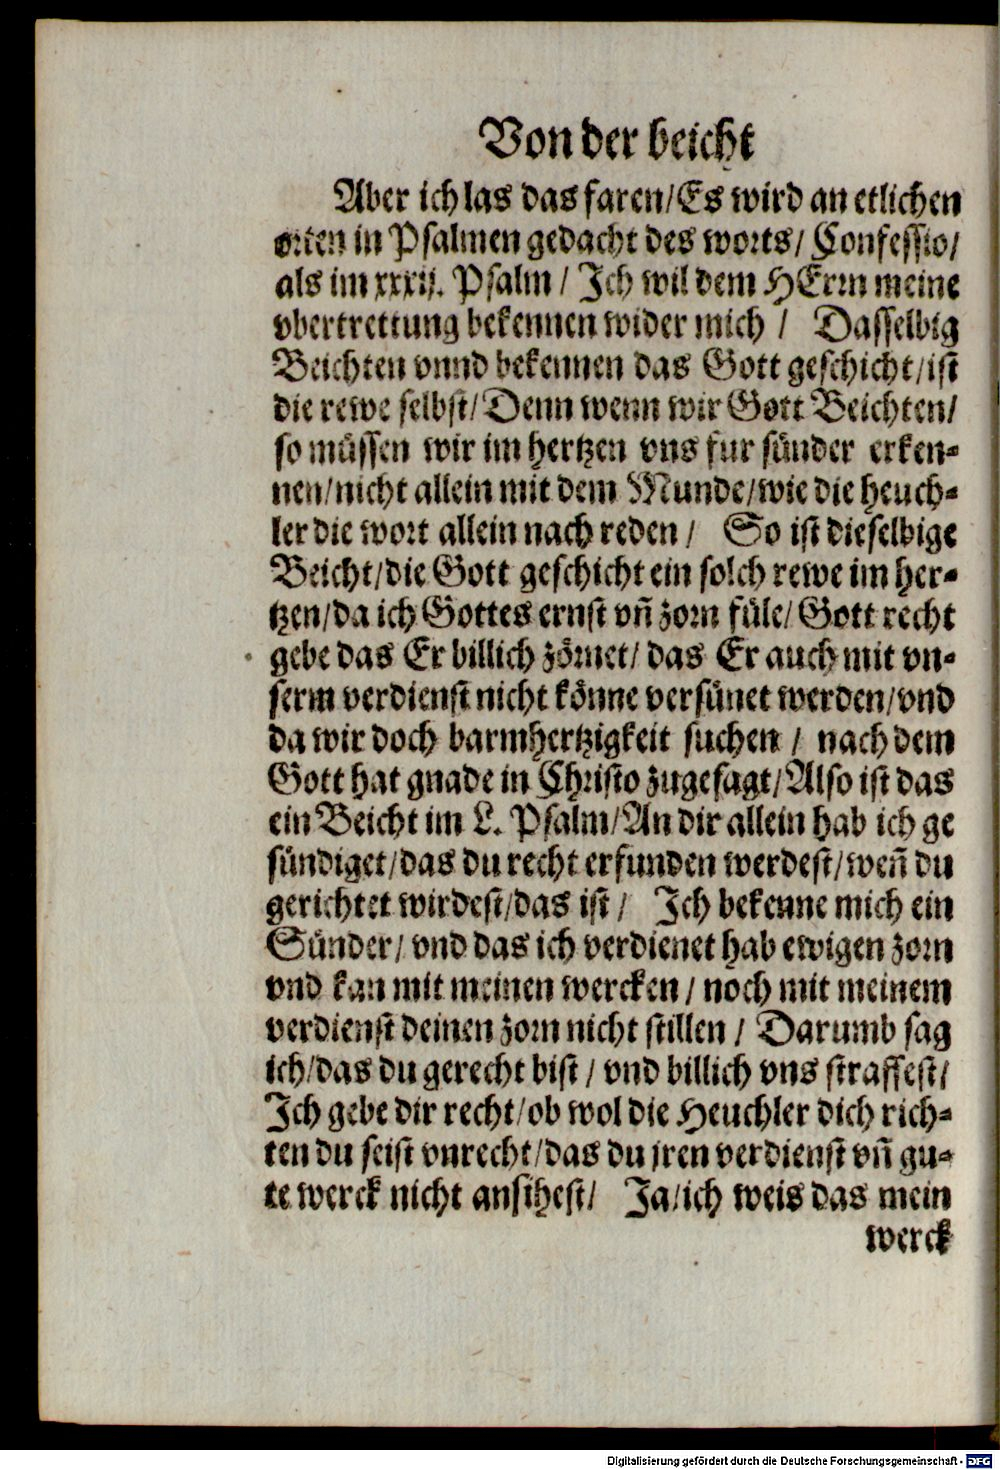 Von der beicht
Aber ich las das faren/Es wird an etlichen
orten in Psalmen gedacht des worts/ Confessio/
als im xxxij. Psalm / Ich wil dem HErrn meine
vbertrettung bekennen wider mich / Dasselbig
Beichten vnnd bekennen das Gott geschicht/ist
die rewe selbst/Denn wenn wir Gott Beichten/
so müssen wir im hertzen vns fur sünder erken-
nen/nicht allein mit dem Munde/wie die heuch-
ler die wort allein nach reden / So ist dieselbige
Beicht/die Gott geschicht ein solch rewe im her-
tzen/da ich Gottes ernst vñ zorn füle/ Gott recht
gebe das Er billich zörnet/ das Er auch mit vn-
serm verdienst nicht könne versünet werden/vnd
da wir doch barmhertzigkeit suchen / nach dem
Gott hat gnade in Christo zugesagt/Also ist das
ein Beicht im L. Psalm/An dir allein hab ich ge
sündiget/das du recht erfunden werdest/weñ du
gerichtet wirdest/das ist / Ich bekenne mich ein
Sünder/ vnd das ich verdienet hab ewigen zorn
vnd kan mit meinen wercken / noch mit meinem
verdienst deinen zorn nicht stillen / Darumb sag
ich/das du gerecht bist / vnd billich vns straffest/
Ich gebe dir recht/ob wol die Heuchler dich rich-
ten du seist vnrecht/das du jren verdienst vñ gu-
te werck nicht ansihest/ Ja/ich weis das mein
werck
Digitalisierung gefördert durch die Deutsche Forschungsgemeinschaft - DFG